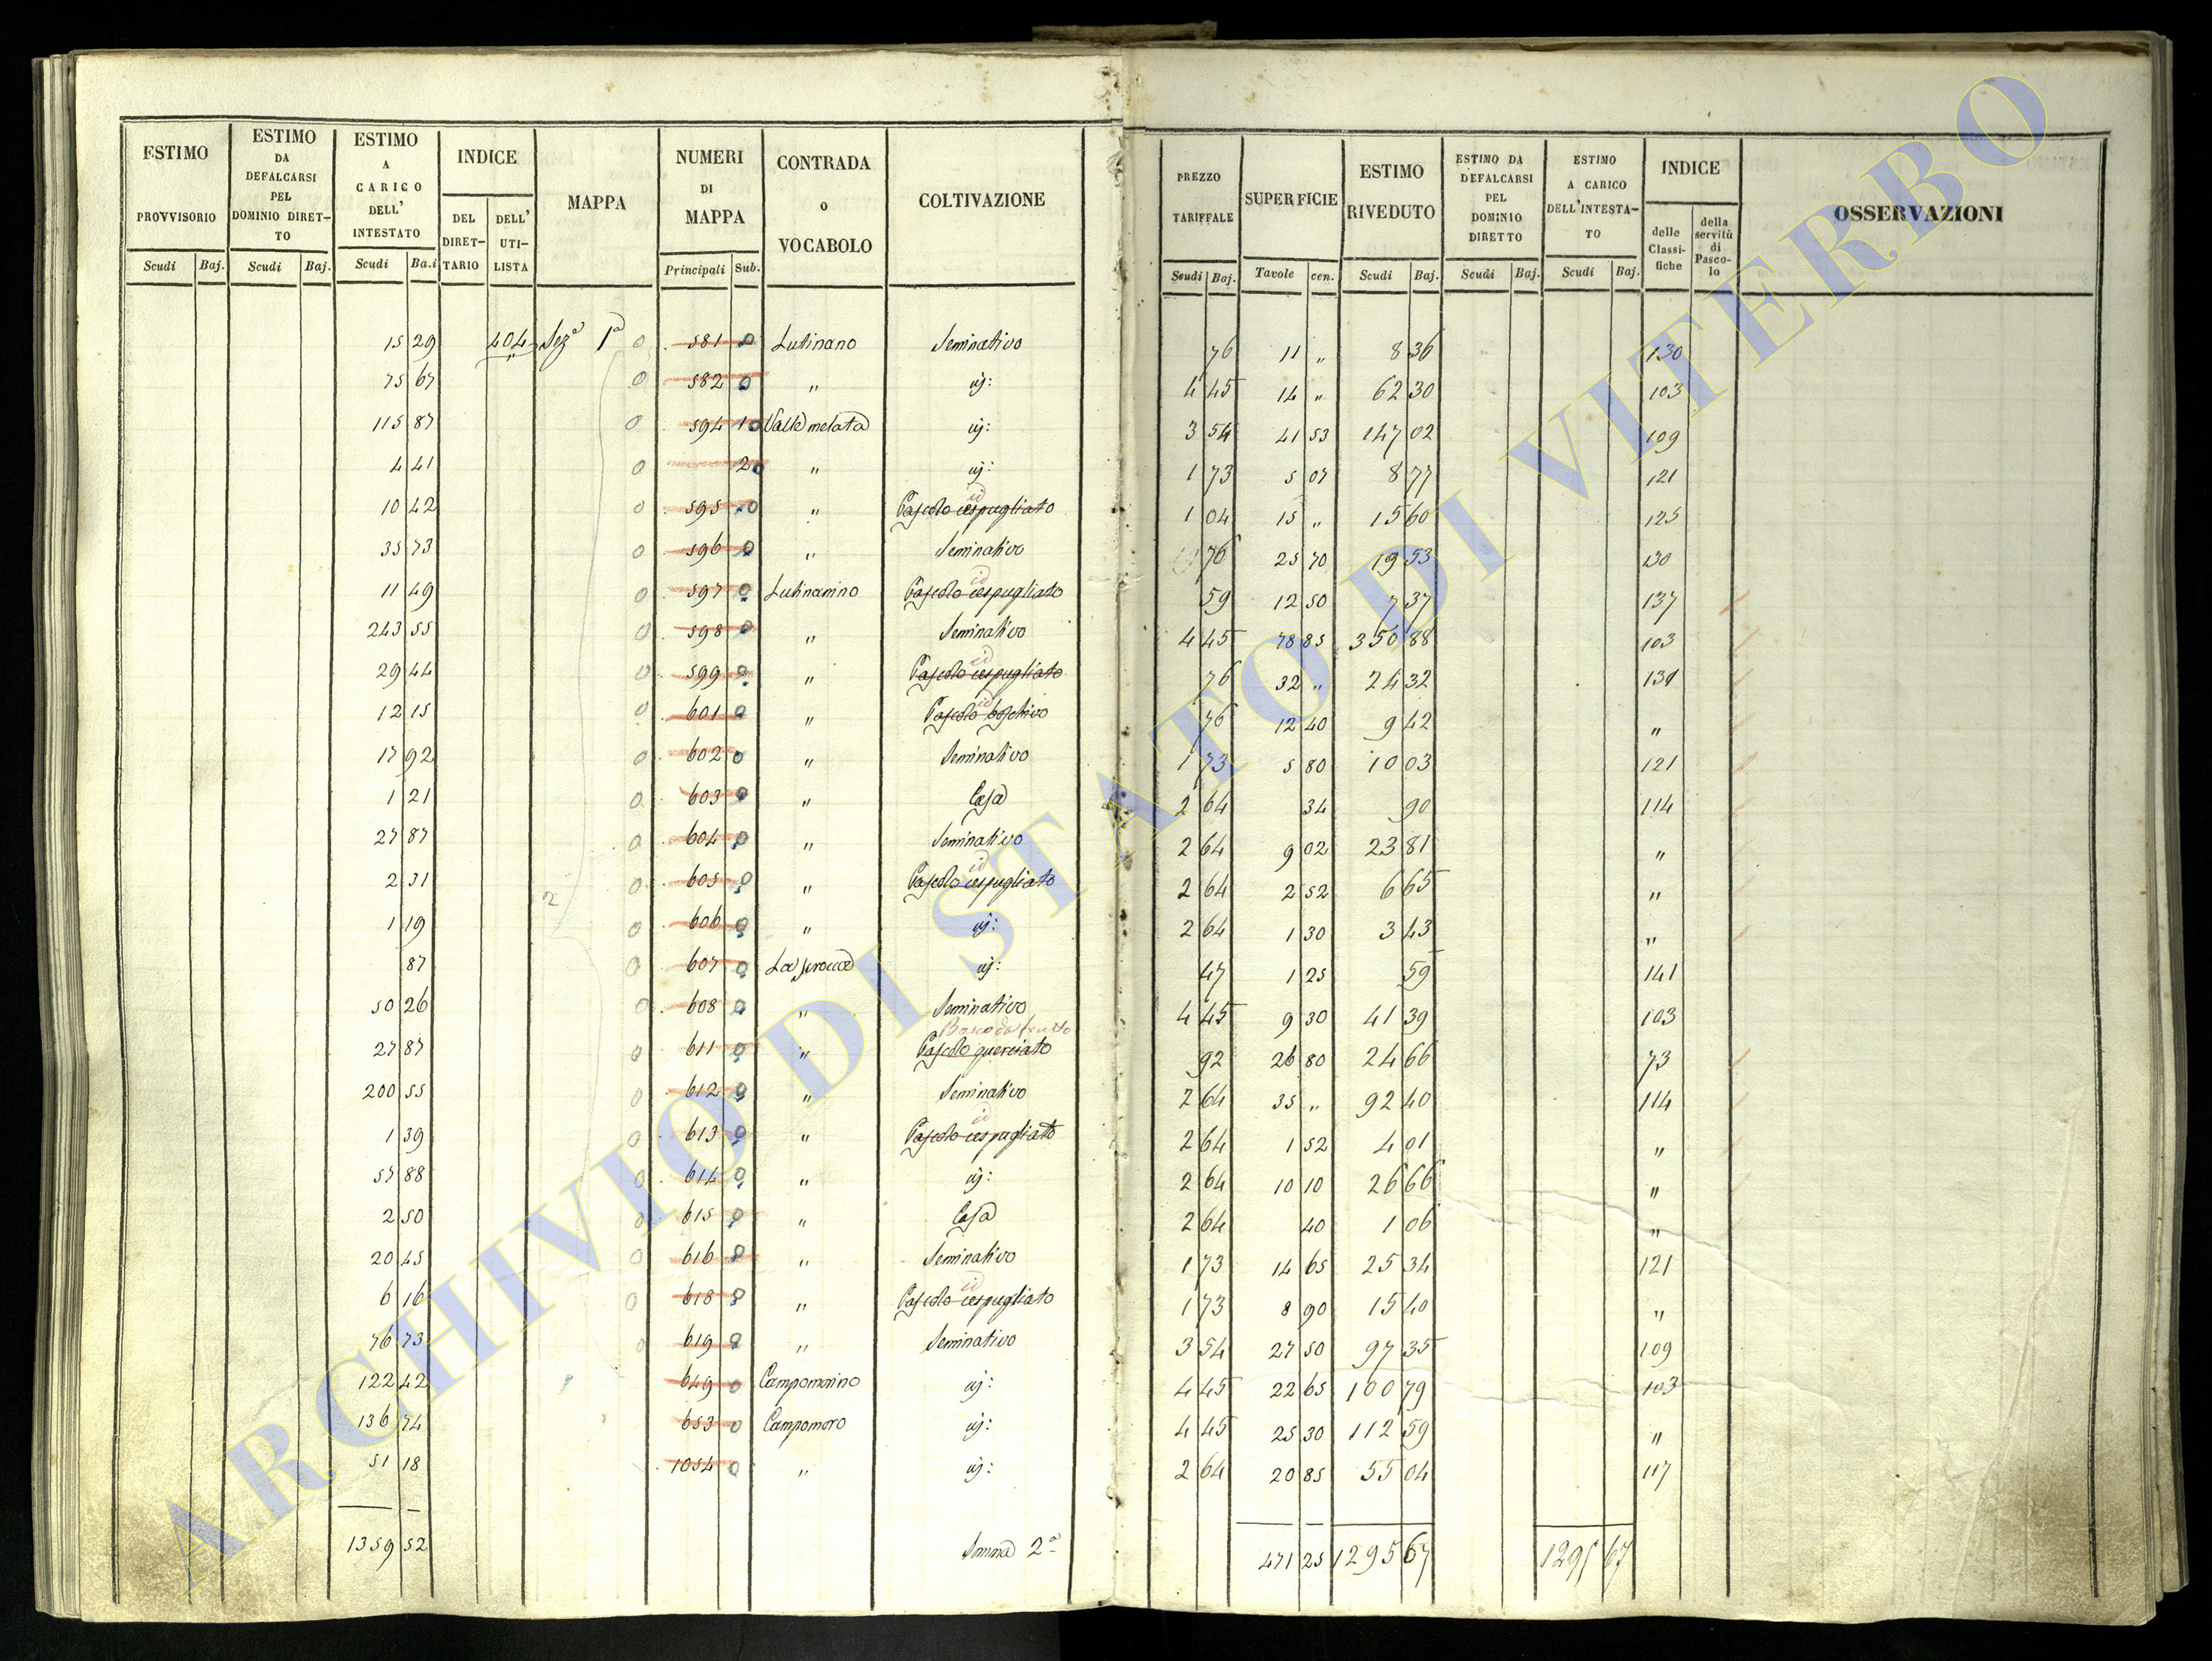 ESTIMO PROVVISORIO Scudi Baj. | ESTIMO DA DEFALCARSI PEL DOMINIO DIRETTO Scudi Baj. | ESTIMO A CARICO DELL' INTESTATO Scudi Ba.i | INDICE DEL DIRETTARIO DELL' UTILISTA | MAPPA | NUMERI DI MAPPA Principali Sub. | CONTRADA o VOCABOLO | COLTIVAZIONE | PREZZO TARIFFALE Scudi Baj. | SUPERFICIE Tavole cen. | ESTIMO RIVEDUTO Scudi Baj. | ESTIMO DA DEFALCARSI PEL DOMINIO DIRETTO Scudi Baj. | ESTIMO A CARICO DELL'INTESTATO Scudi Baj. | INDICE delle Classifiche della servitù di Pascolo | OSSERVAZIONI
15 29 404 Sez.a 1a 0 581 0 Lutinano Seminativo 76 11 „ 8 36 130
75 67 0 582 0 „ id: 4 45 14 „ 62 30 103
115 87 0 594 1 0 Valle melata id: 3 54 41 53 147 02 109
4 41 0 2 0 „ id: 1 73 5 07 8 77 121
10 42 0 595 0 „ id Pascolo cespugliato 1 04 15 „ 15 60 125
35 73 0 596 0 „ Seminativo 76 25 70 19 53 130
11 49 0 597 0 Lutinanino id Pascolo cespugliato 59 12 50 7 37 137
243 55 0 598 0 „ Seminativo 4 45 78 85 350 88 103
29 44 0 599 0 „ id Pascolo cespugliato 76 32 „ 24 32 131
12 15 0 601 0 „ id Pascolo boschivo 76 12 40 9 42 „
17 92 0 602 0 „ Seminativo 1 73 5 80 10 03 121
1 21 0 603 0 „ Casa 2 64 34 90 114
27 87 0 604 0 „ Seminativo 2 64 9 02 23 81 „
2 31 0 605 0 „ id Pascolo cespugliato 2 64 2 52 6 65 „
1 19 0 606 0 „ id: 2 64 1 30 3 43 „
87 0 607 0 id: 47 1 25 59 141
50 26 0 608 0 „ Seminativo 4 45 9 30 41 39 103
27 87 0 611 0 „ Bosco da frutto Pascolo querciato 92 26 80 24 66 73
200 55 0 612 0 „ Seminativo 2 64 35 „ 92 40 114
1 39 0 613 0 „ id Pascolo cespugliato 2 64 1 52 4 01 „
57 88 0 614 0 „ id: 2 64 10 10 26 66 „
2 50 0 615 0 „ Casa 2 64 40 1 06 „
20 45 0 616 0 „ Seminativo 1 73 14 65 25 34 121
6 16 0 618 0 „ id Pascolo cespugliato 1 73 8 90 15 40 „
76 73 0 619 0 „ Seminativo 3 54 27 50 97 35 109
122 42 649 0 Campomorino id: 4 45 22 65 100 79 103
136 74 653 0 Campomoro id: 4 45 25 30 112 59 „
51 18 1054 0 „ id: 2 64 20 85 55 04 117
1359 52 Somma 2a 471 25 1295 67 1295 67
ARCHIVIO DI STATO DI VITERBO